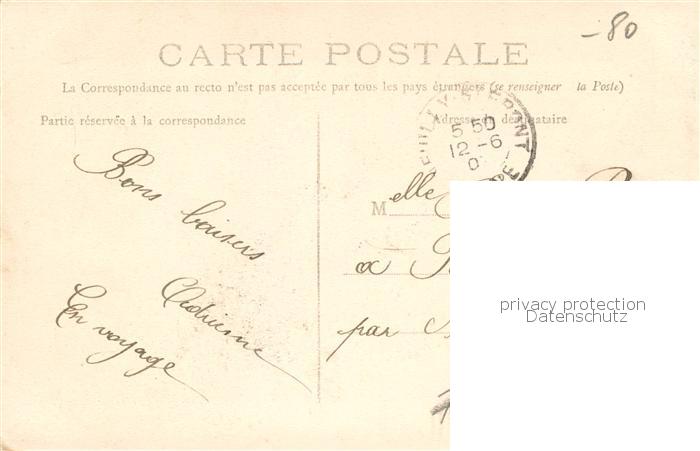 -80
CARTE POSTALE
La Correspondance au recto n'est pas acceptée par tous les pays étrangers (se renseigner la Poste)
Partie réservée à la correspondance
Bons baisers
Adrienne
En voyage
Adresse du destinataire
5 50
12 -6
Melle
à
par
privacy protection
Datenschutz